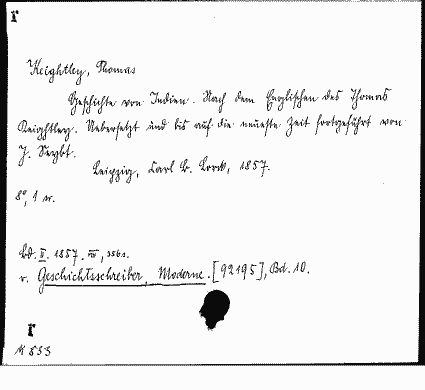 r
Keightley, Thomas
Geschichte von Indien. Nach dem Englischen des Thomas
Keightley. Uebersetzt und bis auf die neueste Zeit fortgeführt von
J. Seybt.
Leipzig, Carl B. Lorck, 1857.
8°, 1 w.
Bd. II. 1857. VIII, 336 s.
v. Geschichtsschreiber, Moderne. [92195], Bd. 10.
r
K 533